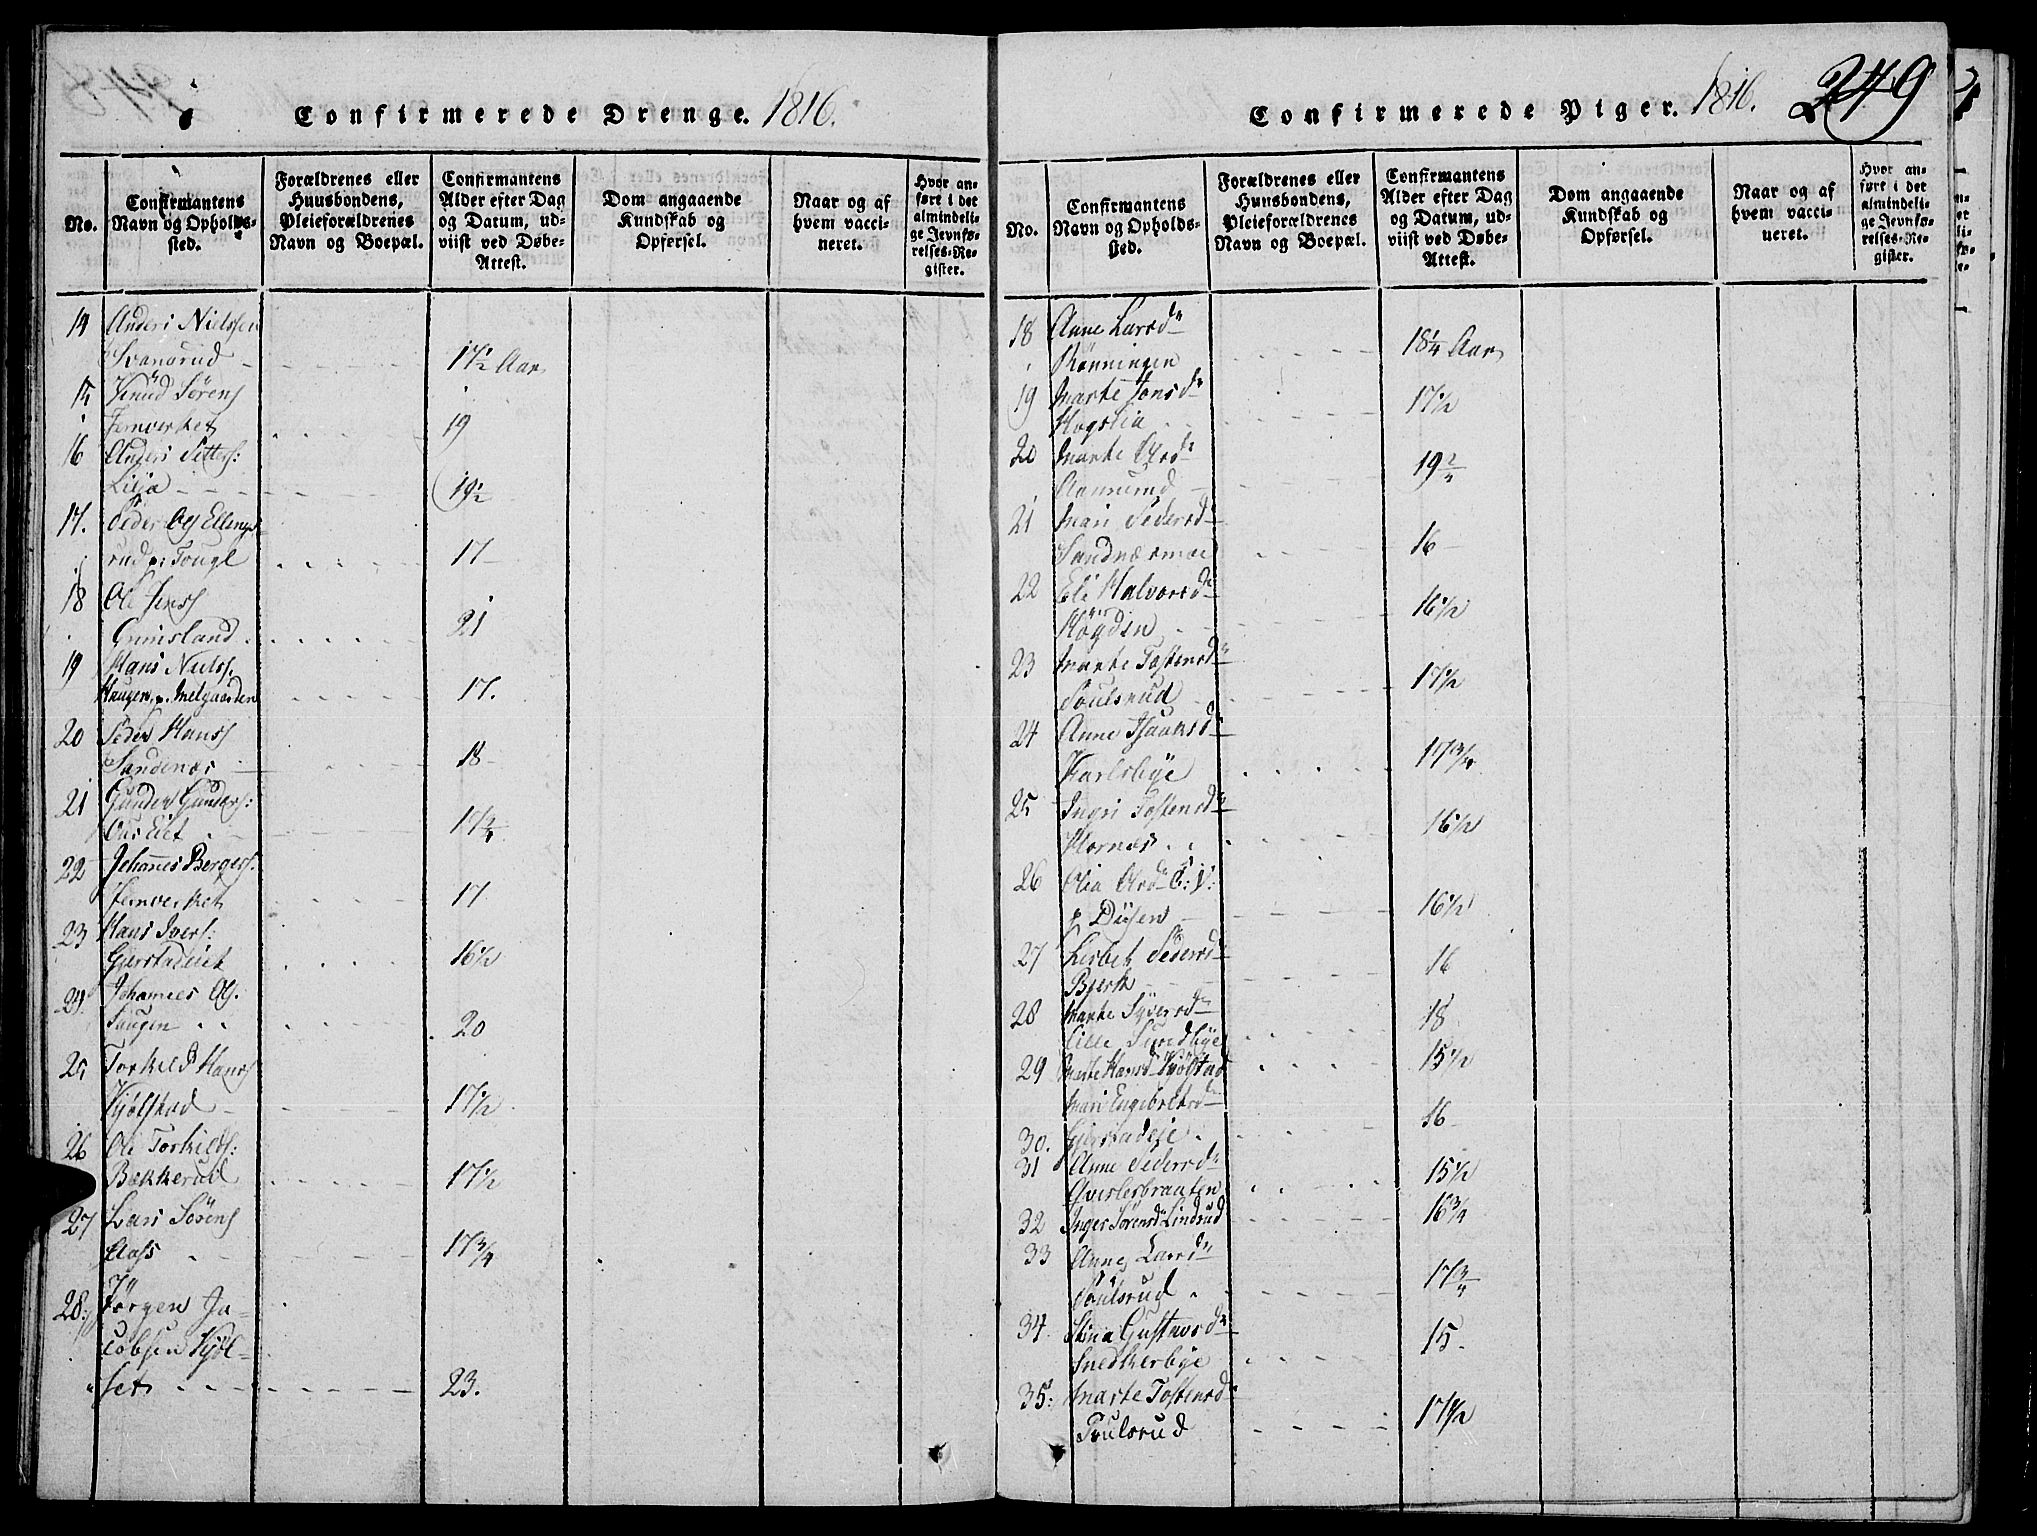 Confirmerede Drenge. 1816.
No.
Confirmantens Navn og Opholdssted.
Forældrenes eller Huusbondens, Pleieforældrenes Navn og Boepæl.
Confirmantens Alder efter Dag og Datum, udviist ved Døbe-Attest.
Dom angaaende Kundskab og Opførsel.
Naar og af hvem vaccineret.
Hvor anført i det almindelige Jevnførelses-Register.
14 Anders Nielssen
Svanørud 17½ Aar
15 Knud Sørens
Jernverket 19
16 Anders Petters:
Lilja 19½
17. Peder Ols Ellings
rud p: Tougl 17
18 Ole Jenss
Grimsland 21
19 Hans Niels.
Haugen p. Melgaarden 17.
20 Peder Hanss
Sandenæs 18
21 Gunder Gunders:
Ous Eiet 17¾
22 Johannes Bergers:
Jernverket 17
23 Hans Ivers:
Gjerstadeiet 16½
24 Johannes Ols.
Haugen 20
25 Torkild Hanss
Kjølstad 17½
26 Ole Torkilds:
Bækkerud 17½
27 Lars Sørens
Aass 17¾
28. Jørgen Ja-
cobsen Kjøl-
set 23.
Confirmerede Piger. 1816. 249
No.
Confirmantens Navn og Opholdssted.
Forældrenes eller Huusbondens, Pleieforældrenes Navn og Boepæl.
Confirmantens Alder efter Dag og Datum, udviist ved Døbe-Attest.
Dom angaaende Kundskab og Opførsel.
Naar og af hvem vaccineret.
Hvor anført i det almindelige Jevnførelses-Register.
18 Anne Larsdr
Rønningen 18¼ Aar
19 Marte Jonsdr
Hogslia 17½
20 Marte Olsdr
Aamurud 19 2/4
21 Mari Pedersd
Sandnæsmoe 16
22 Eli Halvorsd
Høgden 16½
23 Marte Tostensd
Poulsrud 17½
24 Anne Isaaksd
Karlsbye 17¾
25 Ingri Tostensd
Hornæs 16½
26 Olia Olsd E: V:
p Dysen 16½
27 Lisbet Pedersd
Bjerk 16
28 Marte Syversd
Lille Sundbye 18
29 Marte Hansd Kjølstad 15½
Mari Engebretsd
30. Gjerstadeje 16
31 Anne Pedersd
Qverlesbraaten 15½
32 Inger Sørensd Lindrud 16¾
33 Anne Larsd
Poulsrud 17¾
34. Stina Gustavsd
Snedkerbye 15.
35: Marte Tostensd
Poulsrud 17½